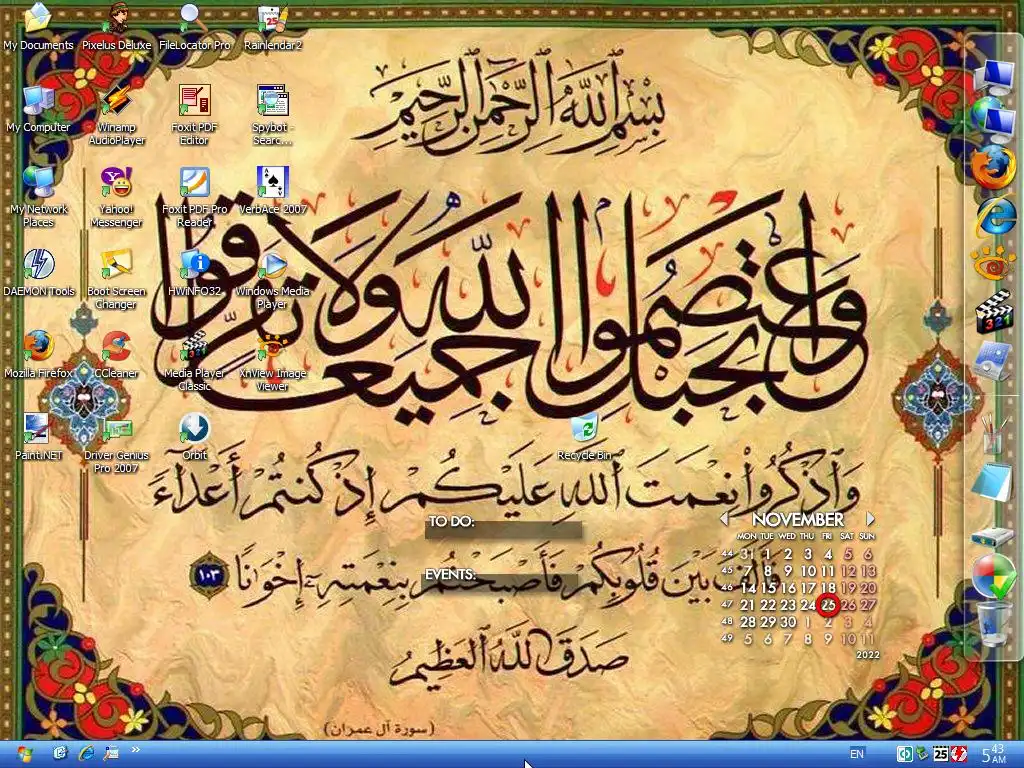 My Documents
Pixelus Deluxe
FileLocator Pro
Rainlendar2
My Computer
Winamp AudioPlayer
Foxit PDF Editor
Spybot - Searc...
My Network Places
Yahoo! Messenger
Foxit PDF Pro Reader
VerbAce 2007
DAEMON Tools
Boot Screen Changer
HWiNFO32
Windows Media Player
Mozilla Firefox
CCleaner
Media Player Classic
XnView Image Viewer
Paint.NET
Driver Genius Pro 2007
Orbit
Recycle Bin
بِسْمِ اللَّهِ الرَّحْمَنِ الرَّحِيمِ
وَاعْتَصِمُوا بِحَبْلِ اللَّهِ جَمِيعًا وَلَا تَفَرَّقُوا
وَاذْكُرُوا نِعْمَتَ اللَّهِ عَلَيْكُمْ إِذْ كُنْتُمْ أَعْدَاءً
بَيْنَ قُلُوبِكُمْ فَأَصْبَحْتُمْ بِنِعْمَتِهِ إِخْوَانًا ١٠٣
صَدَقَ اللَّهُ الْعَظِيمُ
(سورة آل عمران)
TO DO:
EVENTS:
NOVEMBER
MON TUE WED THU FRI SAT SUN
44 31 1 2 3 4 5 6
45 7 8 9 10 11 12 13
46 14 15 16 17 18 19 20
47 21 22 23 24 25 26 27
48 28 29 30 1 2 3 4
49 5 6 7 8 9 10 11
2022
321
EN
25
5 43 AM